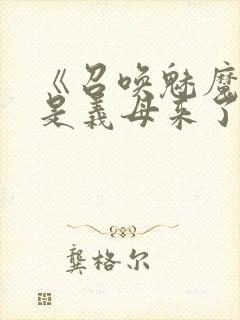 《召唤魅魔
是义母来了
龔格尔